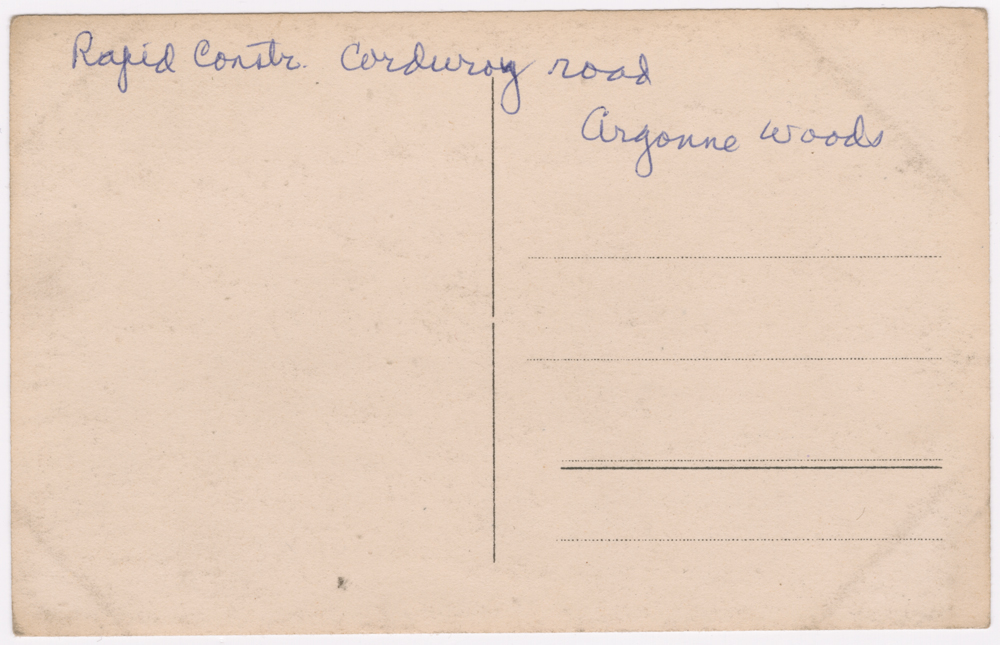 Rapid Constr. Corduroy road
Argonne Woods